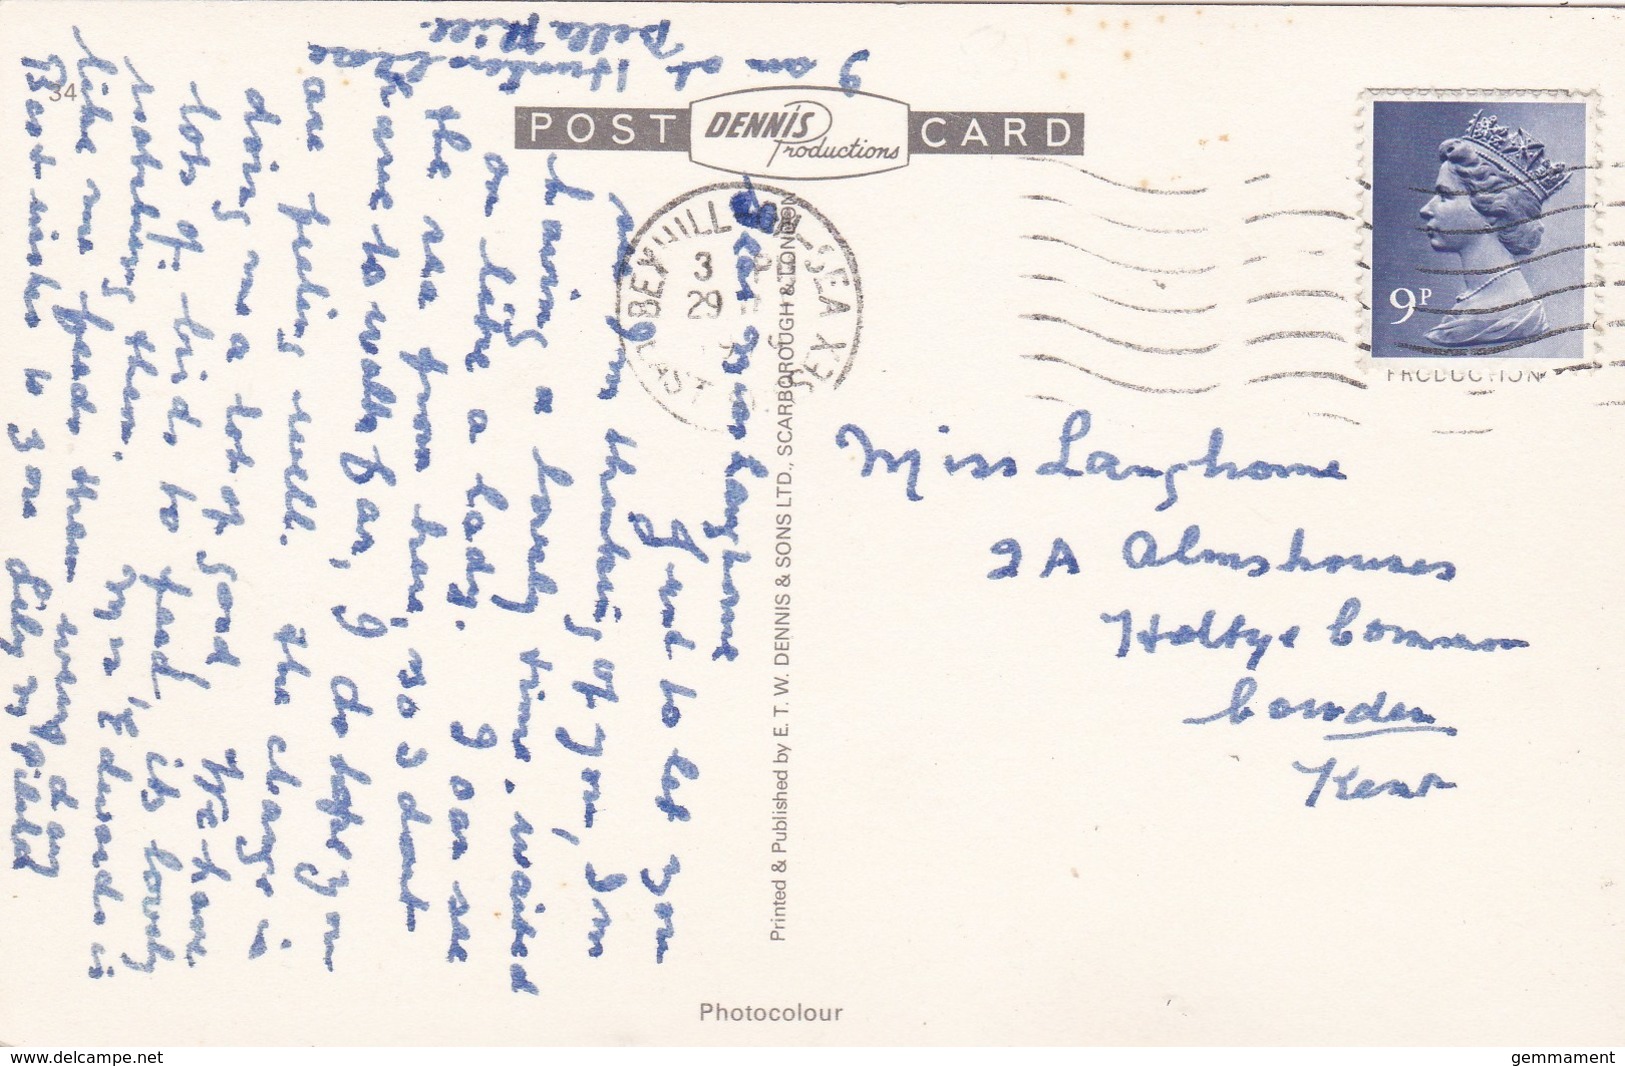 34
POST CARD
DENNIS
Productions
I am at Hunters Close
Della Hill
Dear Miss Langhorne
Just to let you
I am thinking of you, I'm
having a lovely time. waited
on like a lady. I can see
the sea from here, so I dont
have to walk far, I do hope you
are feeling well. the change is
doing me a lot of good We have
lots of birds to feed, its lovely
watching them. Mrs Edwards is
like me feeds them every day
Best wishes to you Lily
BEXHILL-ON-SEA
3
29
EAST SUSSEX
Printed & Published by E. T. W. DENNIS & SONS LTD., SCARBOROUGH & LONDON
9P
PRODUCTION
Miss Langhorne
2A Almshouses
Holtye Common
Cowden
Kent
Photocolour
www.delcampe.net
gemmament